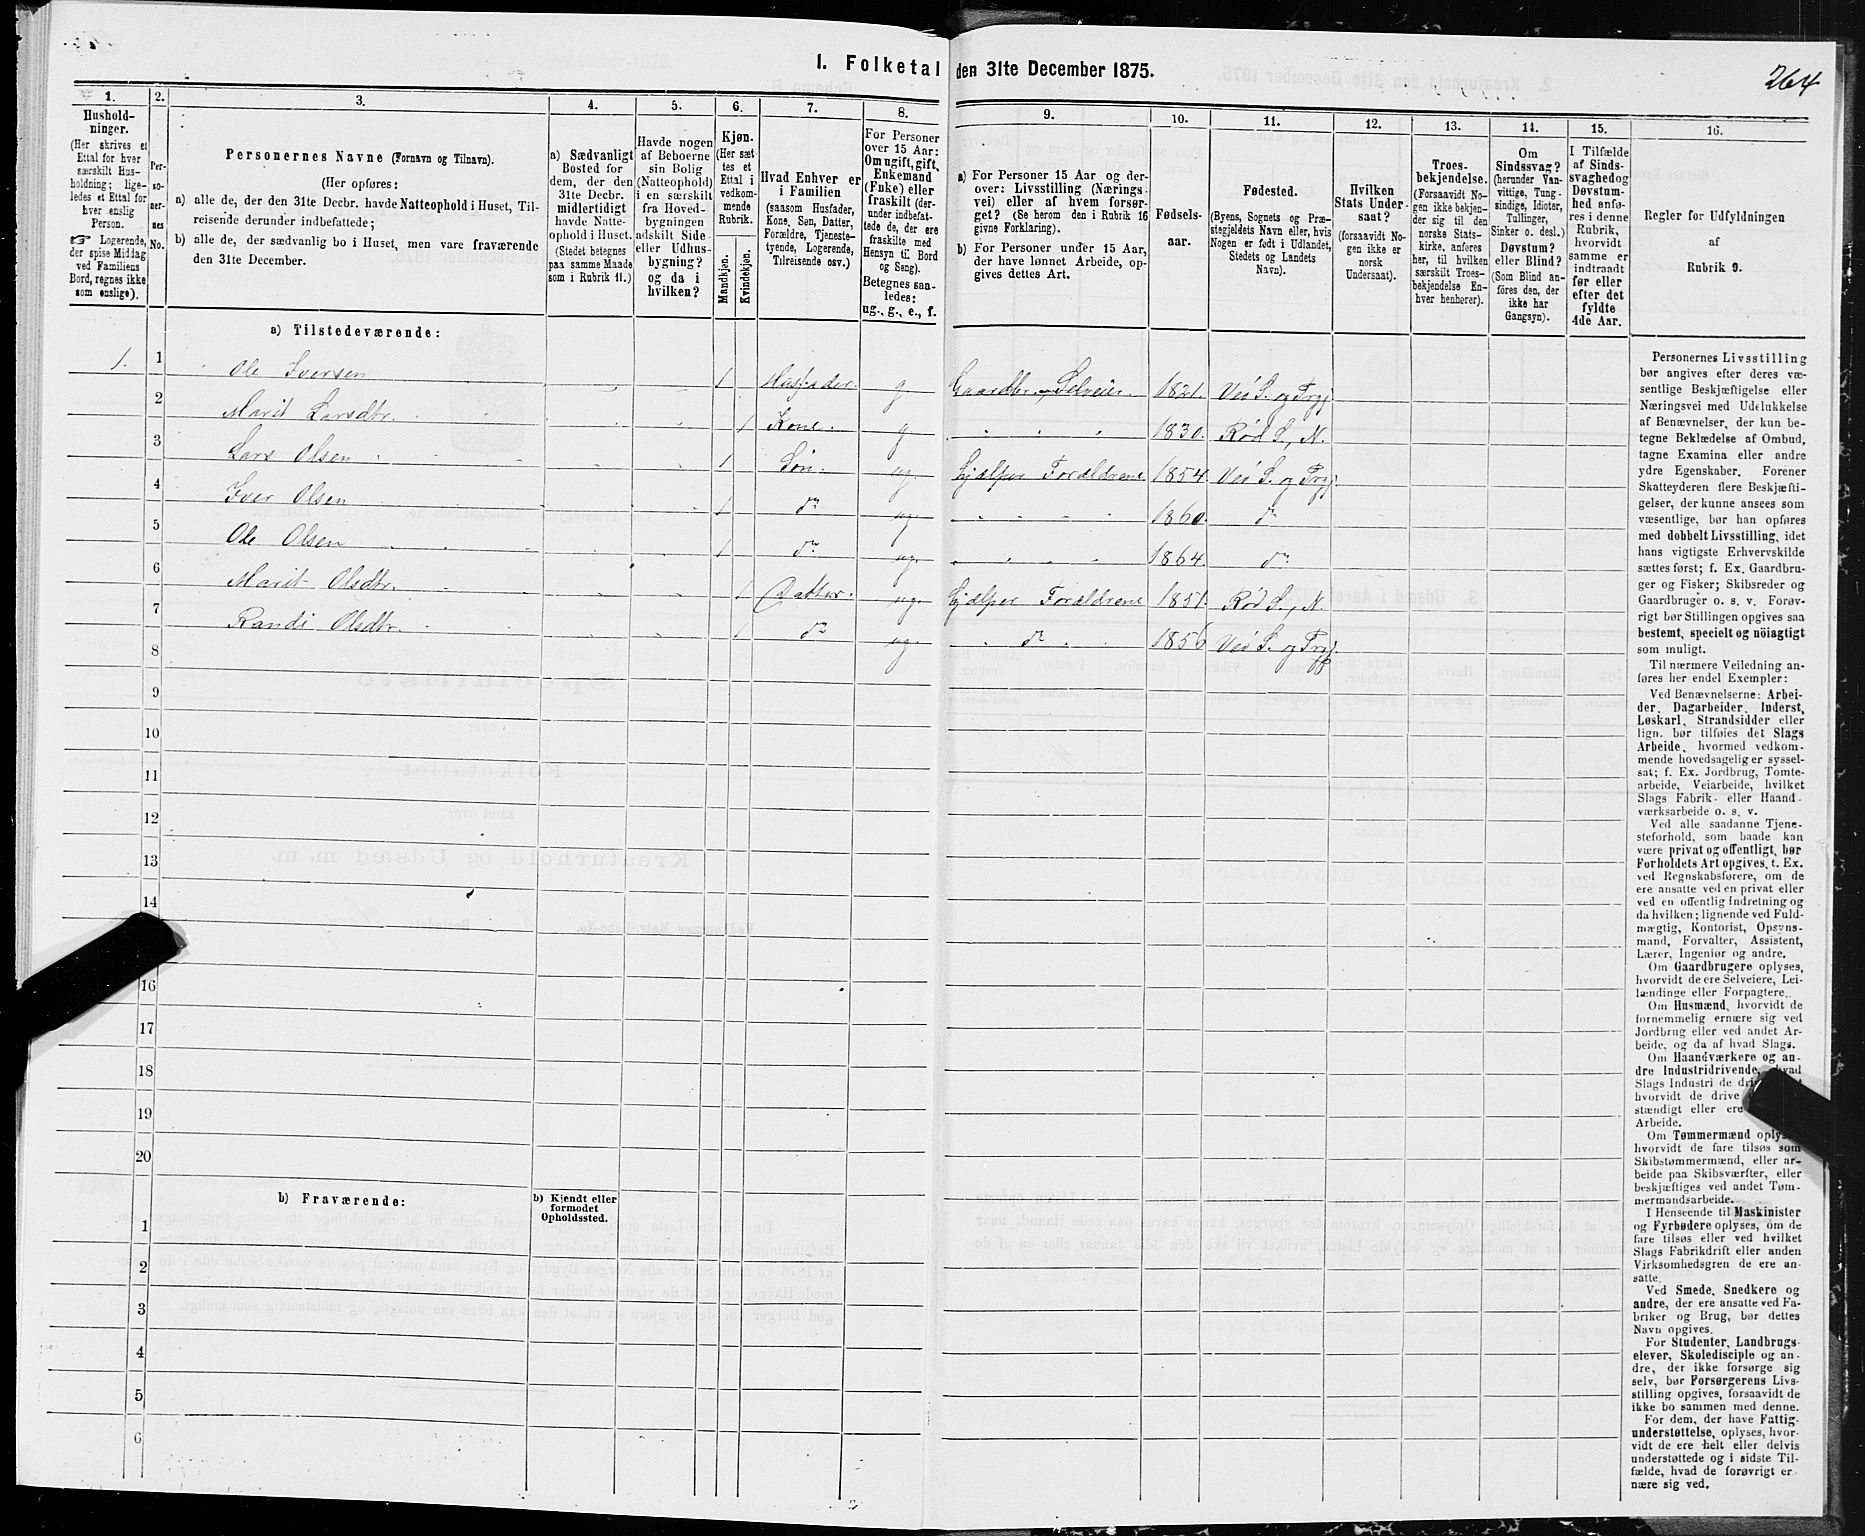 I. Folketal den 31te December 1875.
264
1.
Hushold-
ninger.
(Her skrives et
Ettal for hver
særskilt Hus-
holdning; lige-
ledes et Ettal for
hver enslig
Person.
☞ Logerende,
der spise Middag
ved Familiens
Bord, regnes ikke
som enslige).
2.
Per-
so-
ner-
nes
No.
3.
Personernes Navne (Fornavn og Tilnavn).
(Her opføres:
a) alle de, der den 31te Decbr. havde Natteophold i Huset, Til-
reisende derunder indbefattede;
b) alle de, der sædvanlig bo i Huset, men vare fraværende
den 31te December.
4.
a) Sædvanligt
Bosted for
dem, der den
31te Decbr.
midlertidigt
havde Natte-
ophold i Huset.
(Stedet betegnes
paa samme Maade
som i Rubrik 11.)
5.
Havde nogen
af Beboerne
sin Bolig
(Natteophold)
i en særskilt
fra Hoved-
bygningen
adskilt Side-
eller Udhus-
bygning?
og da i
hvilken?
6.
Kjøn.
(Her sæt-
tes et
Ettal i
vedkom-
mende
Rubrik.
Mandkjøn.
Kvindekjøn.
7.
Hvad Enhver er
i Familien
(saasom Husfader,
Kone, Søn, Datter,
Forældre, Tjeneste-
tyende, Logerende,
Tilreisende osv.)
8.
For Personer
over 15 Aar:
Om ugift, gift,
Enkemand
(Enke) eller
fraskilt (der-
under indbefat-
tede de, der ere
fraskilte med
Hensyn til Bord
og Seng).
Betegnes saa-
ledes:
ug., g., e., f.
9.
a) For Personer 15 Aar og der-
over: Livsstilling (Nærings-
vei) eller af hvem forsør-
get? (Se herom den i Rubrik 16
givne Forklaring).
b) For Personer under 15 Aar,
der have lønnet Arbeide, op-
gives dettes Art.
10.
Fødsels-
aar.
11.
Fødested.
(Byens, Sognets og Præ-
stegjeldets Navn eller, hvis
Nogen er født i Udlandet,
Stedets og Landets
Navn).
12.
Hvilken
Stats Under-
saat?
(forsaavidt No-
gen ikke er
norsk
Undersaat).
13.
Troes-
bekjendelse.
(Forsaavidt No-
gen ikke bekjen-
der sig til den
norske Stats-
kirke, anføres
her, til hvilken
særskilt Troes-
bekjendelse En-
hver henhører).
14.
Om
Sindssvag?
(herunder Van-
vittige, Tung-
sindige, Idioter,
Tullinger,
Sinker o. desl.)
Døvstum?
eller Blind?
(Som Blind an-
føres den, der
ikke har
Gangsyn).
15.
I Tilfælde
af Sinds-
svaghed og
Døvstum-
hed anfø-
res i denne
Rubrik,
hvorvidt
samme er
indtraadt
før eller
efter det
fyldte
4de Aar.
16.
Regler for Udfyldningen
af
Rubrik 9.
a) Tilstedeværende:
1. 1 Ole Iversen 1 Husfader g Gaardbr. og Selveier. 1821. Veø S. og Prgj
2 Marit Larsdtr. 1 Kone. g. " " " 1830. Rød S., N.
3 Lars Olsen 1 Søn. ug. hjælper Forældrene 1854. Veø S. og Prgj
4 Iver Olsen 1 do ug. " " " 1860. do
5 Ole Olsen 1 do ug. " " " 1864. do
6 Marit Olsdtr. 1 Datter. ug. hjælper Forældrene 1851. Rød S., N.
7 Randi Olsdtr. 1 do ug. " do " 1856 Veø S. og Prgj.
8
9
10
11
12
13
14
16
17
18
19
20
b) Fraværende:
b) Kjendt eller
formodet
Opholdssted.
1
2
3
4
5
6
Personernes Livsstilling
bør angives efter deres væ-
sentlige Beskjæftigelse eller
Næringsvei med Udelukkelse
af Benævnelser, der kun be-
tegne Beklædelse af Ombud,
tagne Examina eller andre
ydre Egenskaber. Forener
Skatteyderen flere Beskjæfti-
gelser, der kunne ansees som
væsentlige, bør han opføres
med dobbelt Livsstilling, idet
hans vigtigste Erhvervskilde
sættes først; f. Ex. Gaardbru-
ger og Fisker; Skibsreder og
Gaardbruger o. s. v. Forøv-
rigt bør Stillingen opgives saa
bestemt, specielt og nöiagtigt
som muligt.
Til nærmere Veiledning an-
føres her endel Exempler:
Ved Benævnelserne: Arbei-
der, Dagarbeider, Inderst,
Løskarl, Strandsidder eller
lign. bør tilføies det Slags
Arbeide, hvormed vedkom-
mende hovedsagelig er syssel-
sat; f. Ex. Jordbrug, Tomte-
arbeide, Veiarbeide, hvilket
Slags Fabrik- eller Haand-
værksarbeide o. s. v.
Ved alle saadanne Tjene-
steforhold, som baade kan
være privat og offentligt, bør
Forholdets Art opgives, t. Ex.
ved Regnskabsførere, om de
ere ansatte ved en privat eller
ved en offentlig Indretning og
da hvilken; lignende ved Fuld-
mægtig, Kontorist, Opsyns-
mand, Forvalter, Assistent,
Lærer, Ingeniør og andre.
Om Gaardbrugere oplyses,
hvorvidt de ere Selveiere, Lei-
lændinge eller Forpagtere.
Om Husmænd, hvorvidt de
fornemmelig ernære sig ved
Jordbrug eller ved andet Ar-
beide, og da af hvad Slags.
Om Haandværkere og an-
dre Industridrivende, hvad
Slags Industri de
hvorvidt de drive
stændigt eller ere
Arbeide.
Om Tømmermænd oplyses
hvorvidt de fare tilsøs som
Skibstømmermænd, eller ar-
beide paa Skibsværfter, eller
beskjæftiges ved andet Tøm-
mermandsarbeide.
I Henseende til Maskinister
og Fyrbødere oplyses, om de
fare tilsøs eller ved hvilket
Slags Fabrikdrift eller anden
Virksomhedsgren de ere an-
satte.
Ved Smede, Snedkere og
andre, der ere ansatte ved Fa-
briker og Brug, bør dettes
Navn opgives.
For Studenter, Landbrugs-
elever, Skoledisciple og an-
dre, der ikke forsørge sig
selv, bør Forsørgerens Livs-
stilling opgives, forsaavidt de
ikke bo sammen med denne.
For dem, der have Fattig-
understøttelse, oplyses, hvor-
vidt de ere helt eller delvis
understøttede og i sidste Til-
fælde, hvad de forøvrigt er-
nære sig ved.